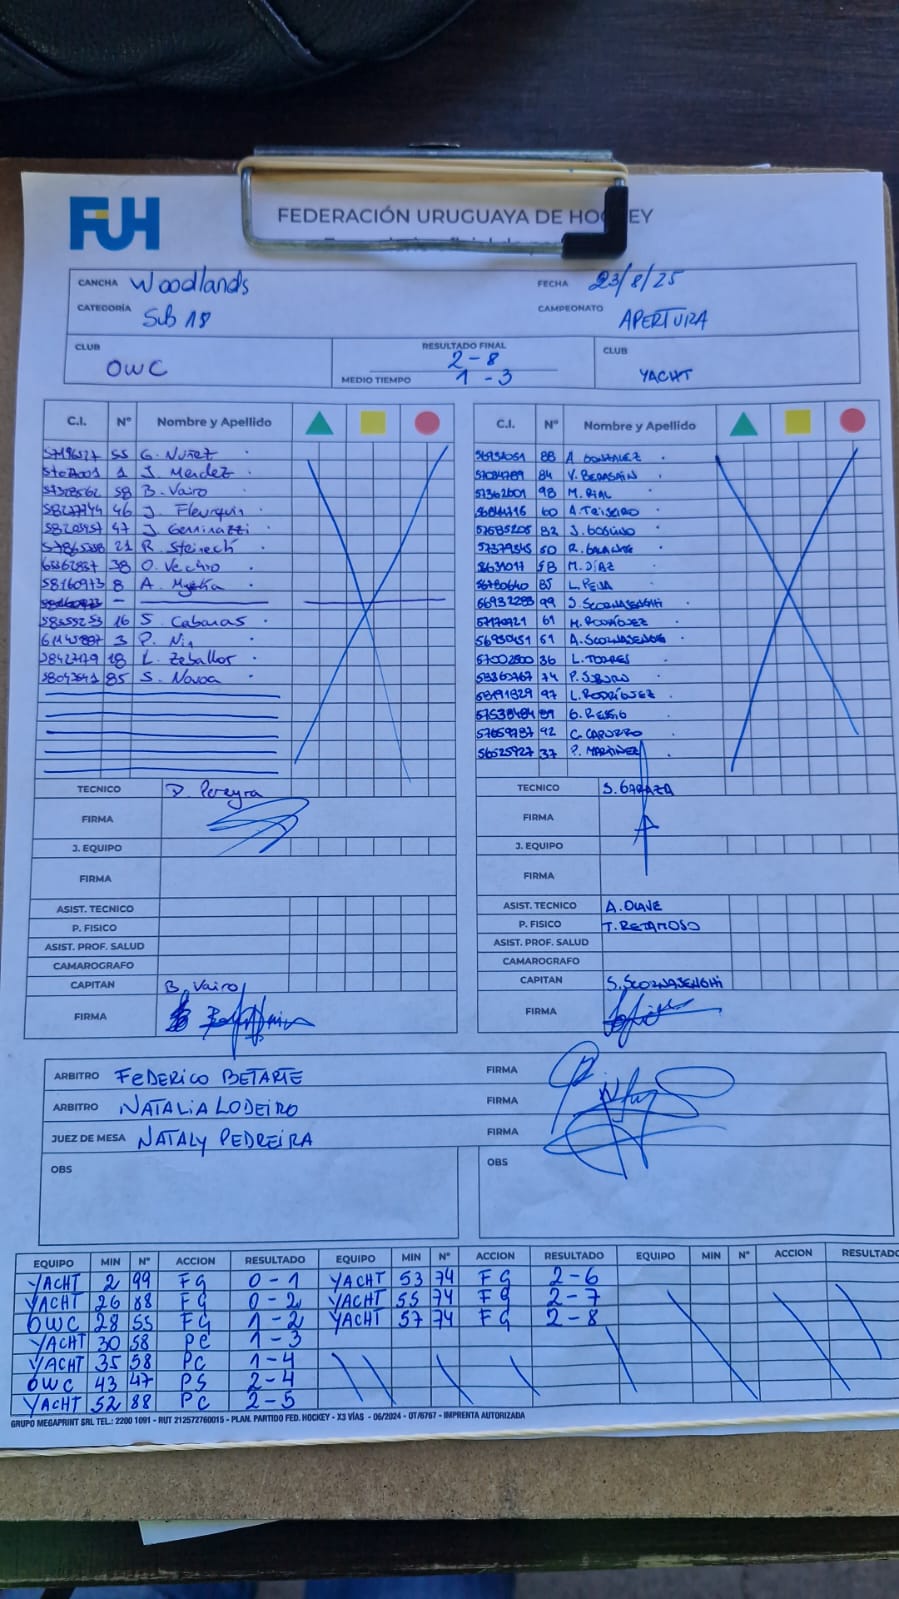 FUH
FEDERACIÓN URUGUAYA DE HOCKEY
CANCHA Woodlands
FECHA 23/8/25
CATEGORÍA Sub 18
CAMPEONATO APERTURA
CLUB OWC
RESULTADO FINAL 2-8
MEDIO TIEMPO 1-3
CLUB YACHT
C.I. N° Nombre y Apellido
55 G. Nuñez
1 J. Mendez
58 B. Vairo
46 J. Fleurquin
47 J. Geminazzi
21 R. Steinech
38 O. Vechio
58160973 8 A.
16 S. Cabanas
3 P. Nin
18 L. Zeballos
85 S. Novoa
TECNICO D. Pereyra
FIRMA
J. EQUIPO
FIRMA
ASIST. TECNICO
P. FISICO
ASIST. PROF. SALUD
CAMAROGRAFO
CAPITAN B. Vairo
FIRMA
C.I. N° Nombre y Apellido
88 A. GONZALEZ
84 V. BERASAIN
98 M. RIAL
60 A. TEIXEIRO
82 J.
50 R. GALANTE
58 M. DÍAZ
85 L. PEJA
99 S. SCORNAJENGHI
61 M. RODRÍGUEZ
51 A. SCORNAJENGHI
57002500 36 L. TORRES
74 P. SUBURO
97 L. RODRÍGUEZ
G. REGGIO
92 C. CAPURRO
56525927 37 P. MARTINEZ
TECNICO S. GARAZA
FIRMA
J. EQUIPO
FIRMA
ASIST. TECNICO A. OLAVE
P. FISICO T. RETAMOSO
ASIST. PROF. SALUD
CAMAROGRAFO
CAPITAN S. SCORNAJENGHI
FIRMA
ARBITRO FEDERICO BETARTE FIRMA
ARBITRO NATALIA LODEIRO FIRMA
JUEZ DE MESA NATALY PEDREIRA FIRMA
OBS OBS
EQUIPO MIN N° ACCION RESULTADO EQUIPO MIN N° ACCION RESULTADO EQUIPO MIN N° ACCION RESULTADO
YACHT 2 99 FG 0-1 YACHT 53 74 FG 2-6
YACHT 26 88 FG 0-2 YACHT 55 74 FG 2-7
OWC 28 55 FG 1-2 YACHT 57 74 FG 2-8
YACHT 30 58 PC 1-3
YACHT 35 58 PC 1-4
OWC 43 47 PS 2-4
YACHT 52 88 PC 2-5
GRUPO MEGAPRINT SRL TEL.: 2200 1091 - RUT 212572760015 - PLAN. PARTIDO FED. HOCKEY - X3 VÍAS - 06/2024 - OT/6767 - IMPRENTA AUTORIZADA